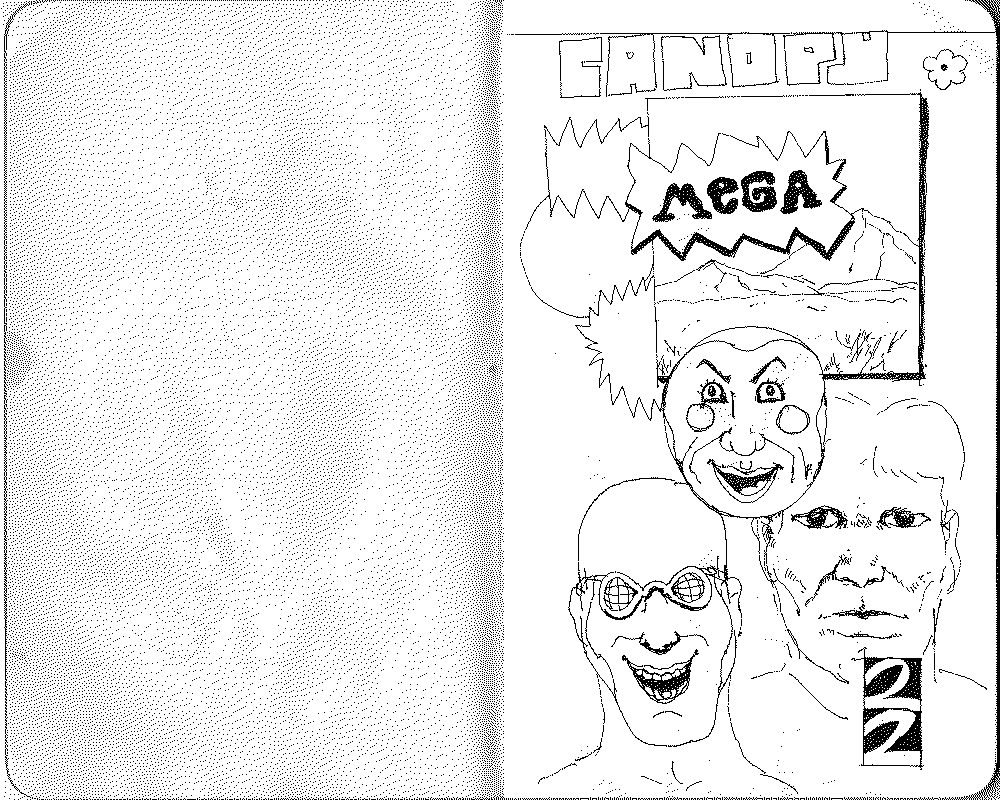 CANOPY
MEGA